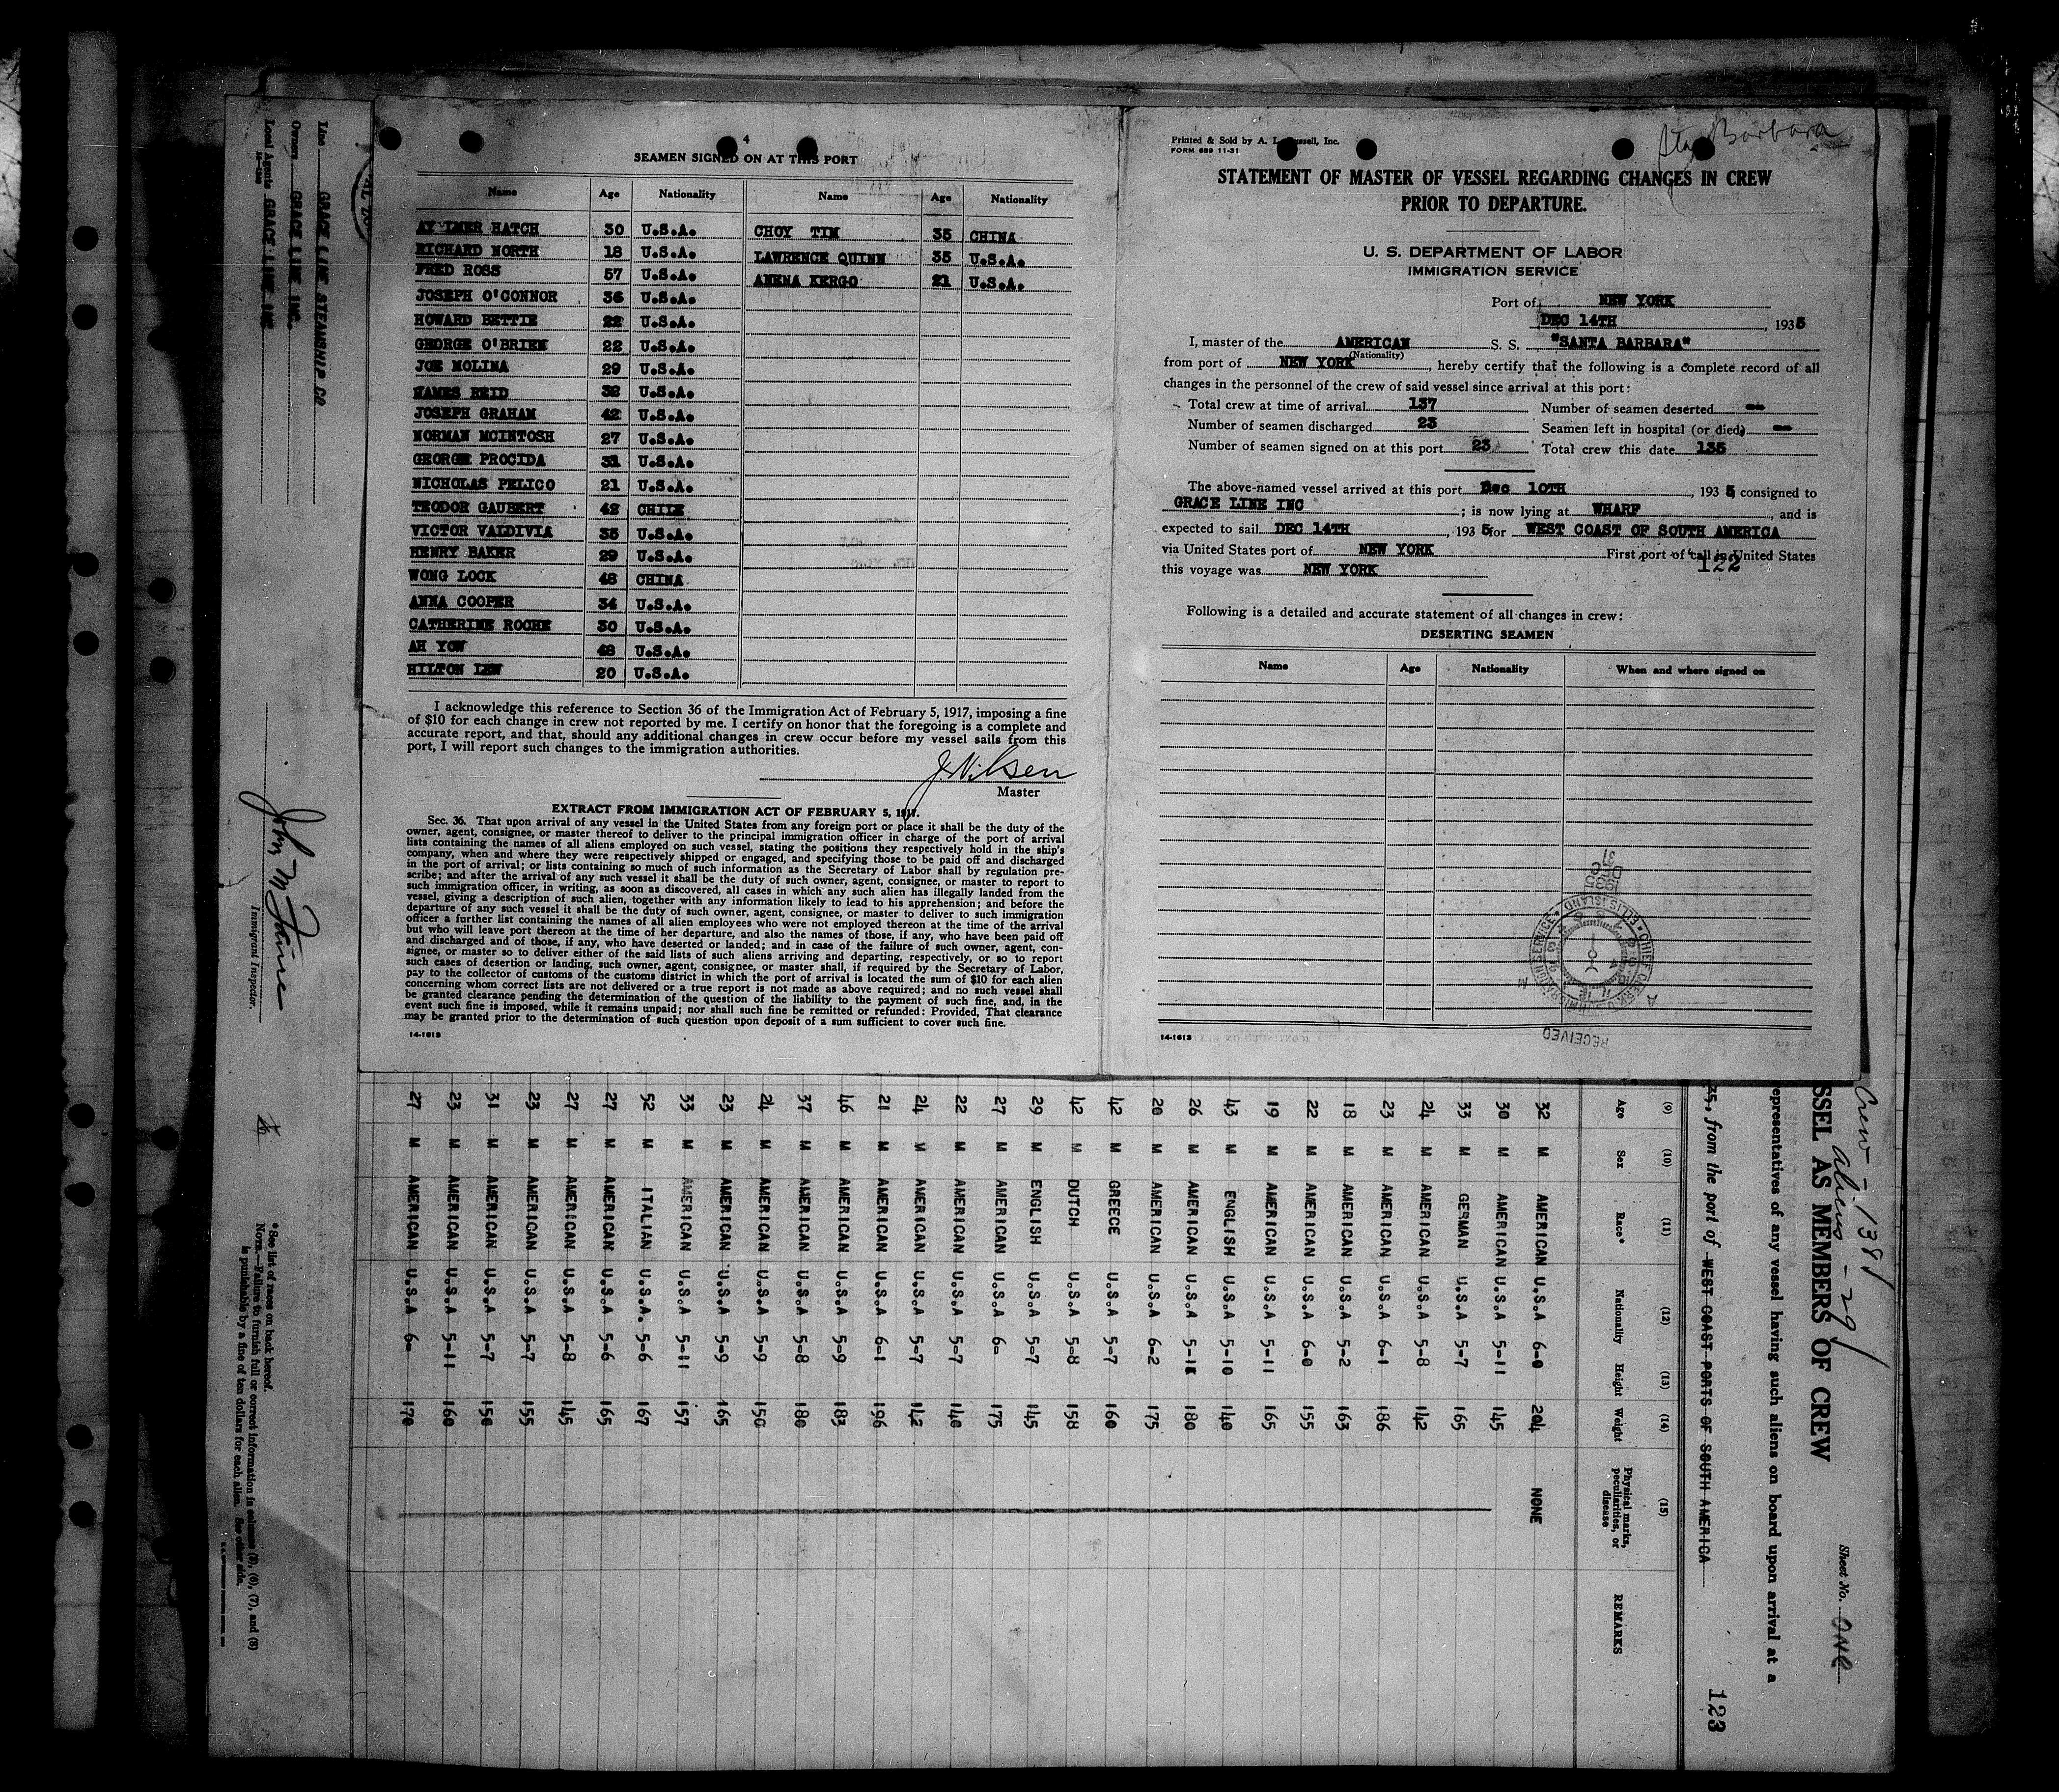 4
SEAMEN SIGNED ON AT THIS PORT
Name Age Nationality Name Age Nationality
AYLMER HATCH 30 U.S.A. CHOY TIM 35 CHINA
RICHARD NORTH 18 U.S.A. LAWRENCE QUINN 35 U.S.A.
FRED ROSS 57 U.S.A. ANENA KERGO 21 U.S.A.
JOSEPH O'CONNOR 36 U.S.A.
HOWARD BETTIE 22 U.S.A.
GEORGE O'BRIEN 22 U.S.A.
JOE MOLINA 29 U.S.A.
REID U.S.A.
JOSEPH GRAHAM 42 U.S.A.
NORMAN MCINTOSH 27 U.S.A.
GEORGE PROCIDA 31 U.S.A.
NICHOLAS PELICO 21 U.S.A.
TEODOR GAUBERT 42 CHILE
VICTOR VALDIVIA 35 U.S.A.
HENRY BAKER 29 U.S.A.
WONG LOCK 48 CHINA
ANNA COOPER 34 U.S.A.
CATHERINE ROCHE 30 U.S.A.
AH YOW 48 U.S.A.
HILTON LEW 20 U.S.A.
I acknowledge this reference to Section 36 of the Immigration Act of February 5, 1917, imposing a fine
of $10 for each change in crew not reported by me. I certify on honor that the foregoing is a complete and
accurate report, and that, should any additional changes in crew occur before my vessel sails from this
port, I will report such changes to the immigration authorities.
Master
EXTRACT FROM IMMIGRATION ACT OF FEBRUARY 5, 1917.
Sec. 36. That upon arrival of any vessel in the United States from any foreign port or place it shall be the duty of the
owner, agent, consignee, or master thereof to deliver to the principal immigration officer in charge of the port of arrival
lists containing the names of all aliens employed on such vessel, stating the positions they respectively hold in the ship's
company, when and where they were respectively shipped or engaged, and specifying those to be paid off and discharged
in the port of arrival; or lists containing so much of such information as the Secretary of Labor shall by regulation pre-
scribe; and after the arrival of any such vessel it shall be the duty of such owner, agent, consignee, or master to report to
such immigration officer, in writing, as soon as discovered, all cases in which any such alien has illegally landed from the
vessel, giving a description of such alien, together with any information likely to lead to his apprehension; and before the
departure of any such vessel it shall be the duty of such owner, agent, consignee, or master to deliver to such immigration
officer a further list containing the names of all alien employees who were not employed thereon at the time of the arrival
but who will leave port thereon at the time of her departure, and also the names of those, if any, who have been paid off
and discharged and of those, if any, who have deserted or landed; and in case of the failure of such owner, agent, con-
signee, or master so to deliver either of the said lists of such aliens arriving and departing, respectively, or so to report
such cases of desertion or landing, such owner, agent, consignee, or master shall, if required by the Secretary of Labor,
pay to the collector of customs of the customs district in which the port of arrival is located the sum of $10 for each alien
concerning whom correct lists are not delivered or a true report is not made as above required; and no such vessel shall
be granted clearance pending the determination of the question of the liability to the payment of such fine, and, in the
event such fine is imposed, while it remains unpaid; nor shall such fine be remitted or refunded: Provided, That clearance
may be granted prior to the determination of such question upon deposit of a sum sufficient to cover such fine.
14-1613
Printed & Sold by A. L. Inc.
FORM 689 11-31
Sta Barbara
STATEMENT OF MASTER OF VESSEL REGARDING CHANGES IN CREW
PRIOR TO DEPARTURE.
U. S. DEPARTMENT OF LABOR
IMMIGRATION SERVICE
Port of NEW YORK
DEC 14TH, 1935
I, master of the AMERICAN S. S. "SANTA BARBARA"
(Nationality)
from port of NEW YORK, hereby certify that the following is a complete record of all
changes in the personnel of the crew of said vessel since arrival at this port:
Total crew at time of arrival 137 Number of seamen deserted -
Number of seamen discharged 23 Seamen left in hospital (or died) -
Number of seamen signed on at this port 23 Total crew this date 135
The above-named vessel arrived at this port Dec 10TH, 1935 consigned to
GRACE LINE INC; is now lying at WHARF, and is
expected to sail DEC 14TH, 1935 for WEST COAST OF SOUTH AMERICA
via United States port of NEW YORK First port of call in United States
122
this voyage was NEW YORK
Following is a detailed and accurate statement of all changes in crew:
DESERTING SEAMEN
Name Age Nationality When and where signed on
RECEIVED
CHIEF CLERK U.S. IMMIGRATION SERVICE
ELLIS ISLAND
1935
14-1613
Crew - 138
aliens - 29
Sheet No. One
SSEL AS MEMBERS OF CREW
epresentatives of any vessel having such aliens on board upon arrival at a
35, from the port of WEST COAST PORTS OF SOUTH AMERICA
123
(9) (10) (11) (12) (13) (14) (15)
Age Sex Race* Nationality Height Weight Physical marks, peculiarities, or disease REMARKS
32 M AMERICAN U.S.A 6-0 204 NONE
30 M AMERICAN U.S.A 5-11 145
33 M GERMAN U.S.A 5-7 165
24 M AMERICAN U.S.A 5-8 142
23 M AMERICAN U.S.A 6-1 186
18 M AMERICAN U.S.A 5-2 163
22 M AMERICAN U.S.A 6-0 155
19 M AMERICAN U.S.A 5-11 165
43 M ENGLISH U.S.A 5-10 140
26 M AMERICAN U.S.A 180
20 M AMERICAN U.S.A 6-2 175
42 M GREECE U.S.A 5-7 160
42 M DUTCH U.S.A 5-8 158
29 M ENGLISH U.S.A 5-7 145
27 M AMERICAN U.S.A 6- 175
22 M AMERICAN U.S.A 5-7 140
24 M AMERICAN U.S.A 5-7 142
21 M AMERICAN U.S.A 6-1 196
46 M AMERICAN U.S.A 5-9 183
37 M AMERICAN U.S.A 5-8 180
24 M AMERICAN U.S.A 5-9 150
23 M AMERICAN U.S.A 5-9 165
33 M AMERICAN U.S.A 5-11 157
52 M ITALIAN U.S.A. 5-6 167
27 M AMERICAN U.S.A 5-6 165
27 M AMERICAN U.S.A 5-8 145
23 M AMERICAN U.S.A 5-7 155
31 M AMERICAN U.S.A 5-7 150
23 M AMERICAN U.S.A 5-11 160
27 M AMERICAN U.S.A 6- 170
Line GRACE LINE STEAMSHIP CO
Owners GRACE LINE INC.
Local Agents GRACE LINE INC
Immigrant Inspector.
*See list of races on back hereof.
NOTE.—Failure to furnish full or correct information in columns (5), (6), (7), and (8)
is punishable by a fine of ten dollars for each alien. See other side.